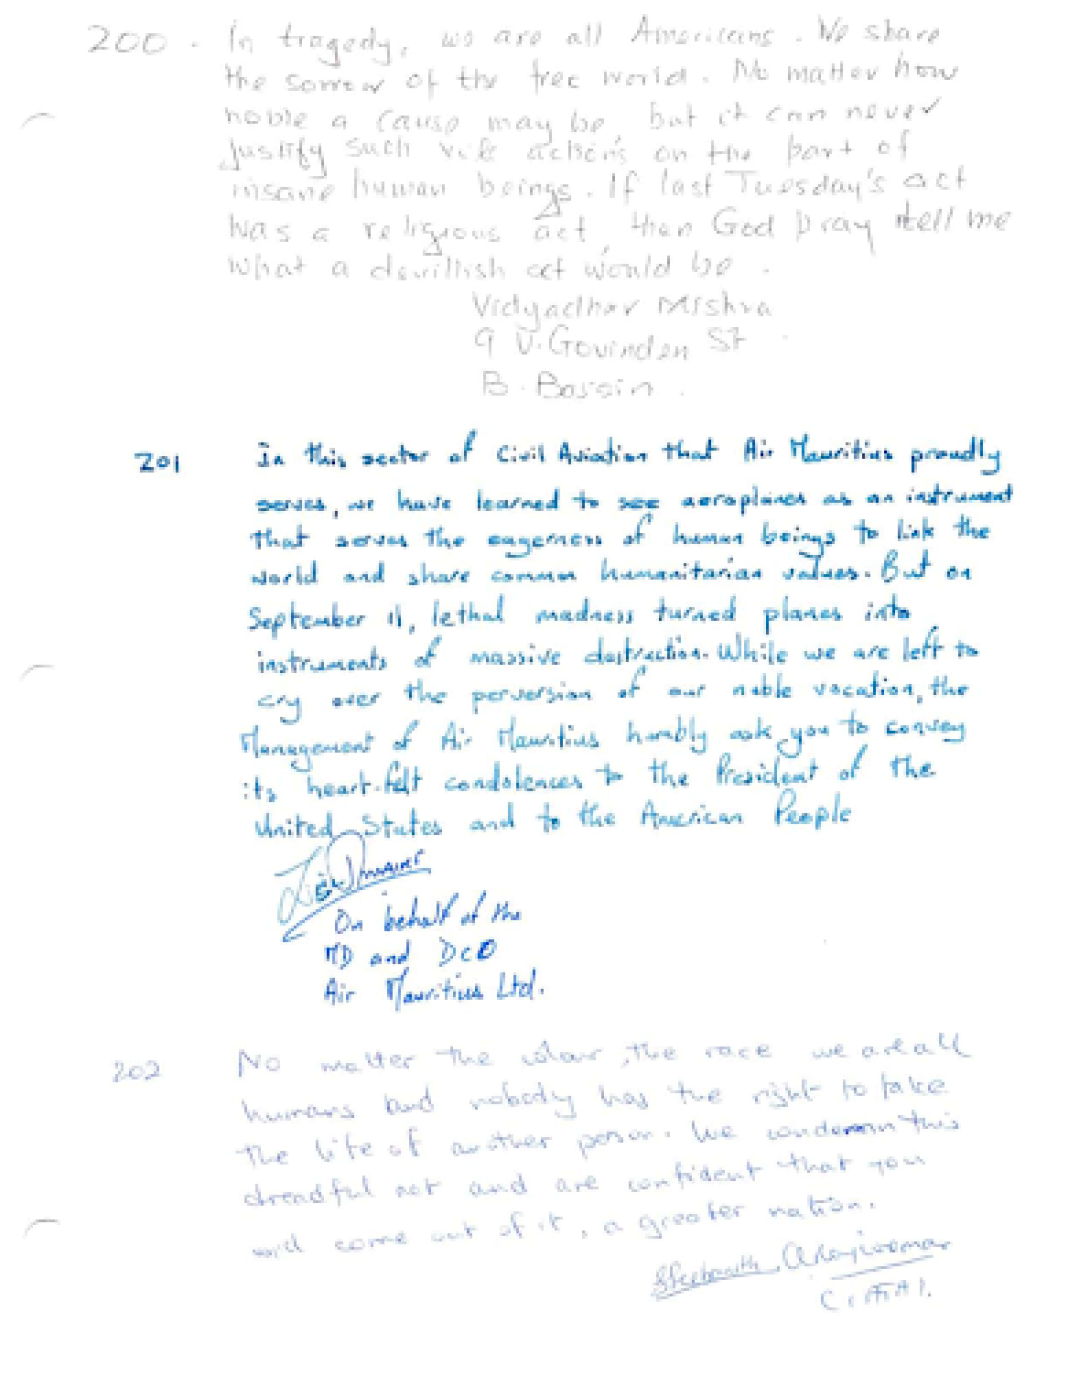 200. In tragedy, we are all Americans. We share
the sorrow of the free world. No matter how
noble a cause may be, but it can never
justify such vile actions on the part of
insane human beings. If last Tuesday's act
was a religious act, then God pray tell me
what a devillish act would be.
Vidyadhar Mishra
9 V. Govinden St
B. Bassin.
201 In this sector of Civil Aviation that Air Mauritius proudly
serves, we have learned to see aeroplanes as an instrument
that serves the eagerness of human beings to link the
world and share common humanitarian values. But on
September 11, lethal madness turned planes into
instruments of massive destruction. While we are left to
cry over the perversion of our noble vocation, the
Management of Air Mauritius humbly ask you to convey
its heart-felt condolences to the President of the
United States and to the American People
On behalf of the
MD and DCO
Air Mauritius Ltd.
202 No matter the colour, the race we are all
humans and nobody has the right to take
the life of another person. We condemn this
dreadful act and are confident that you
will come out of it, a greater nation.